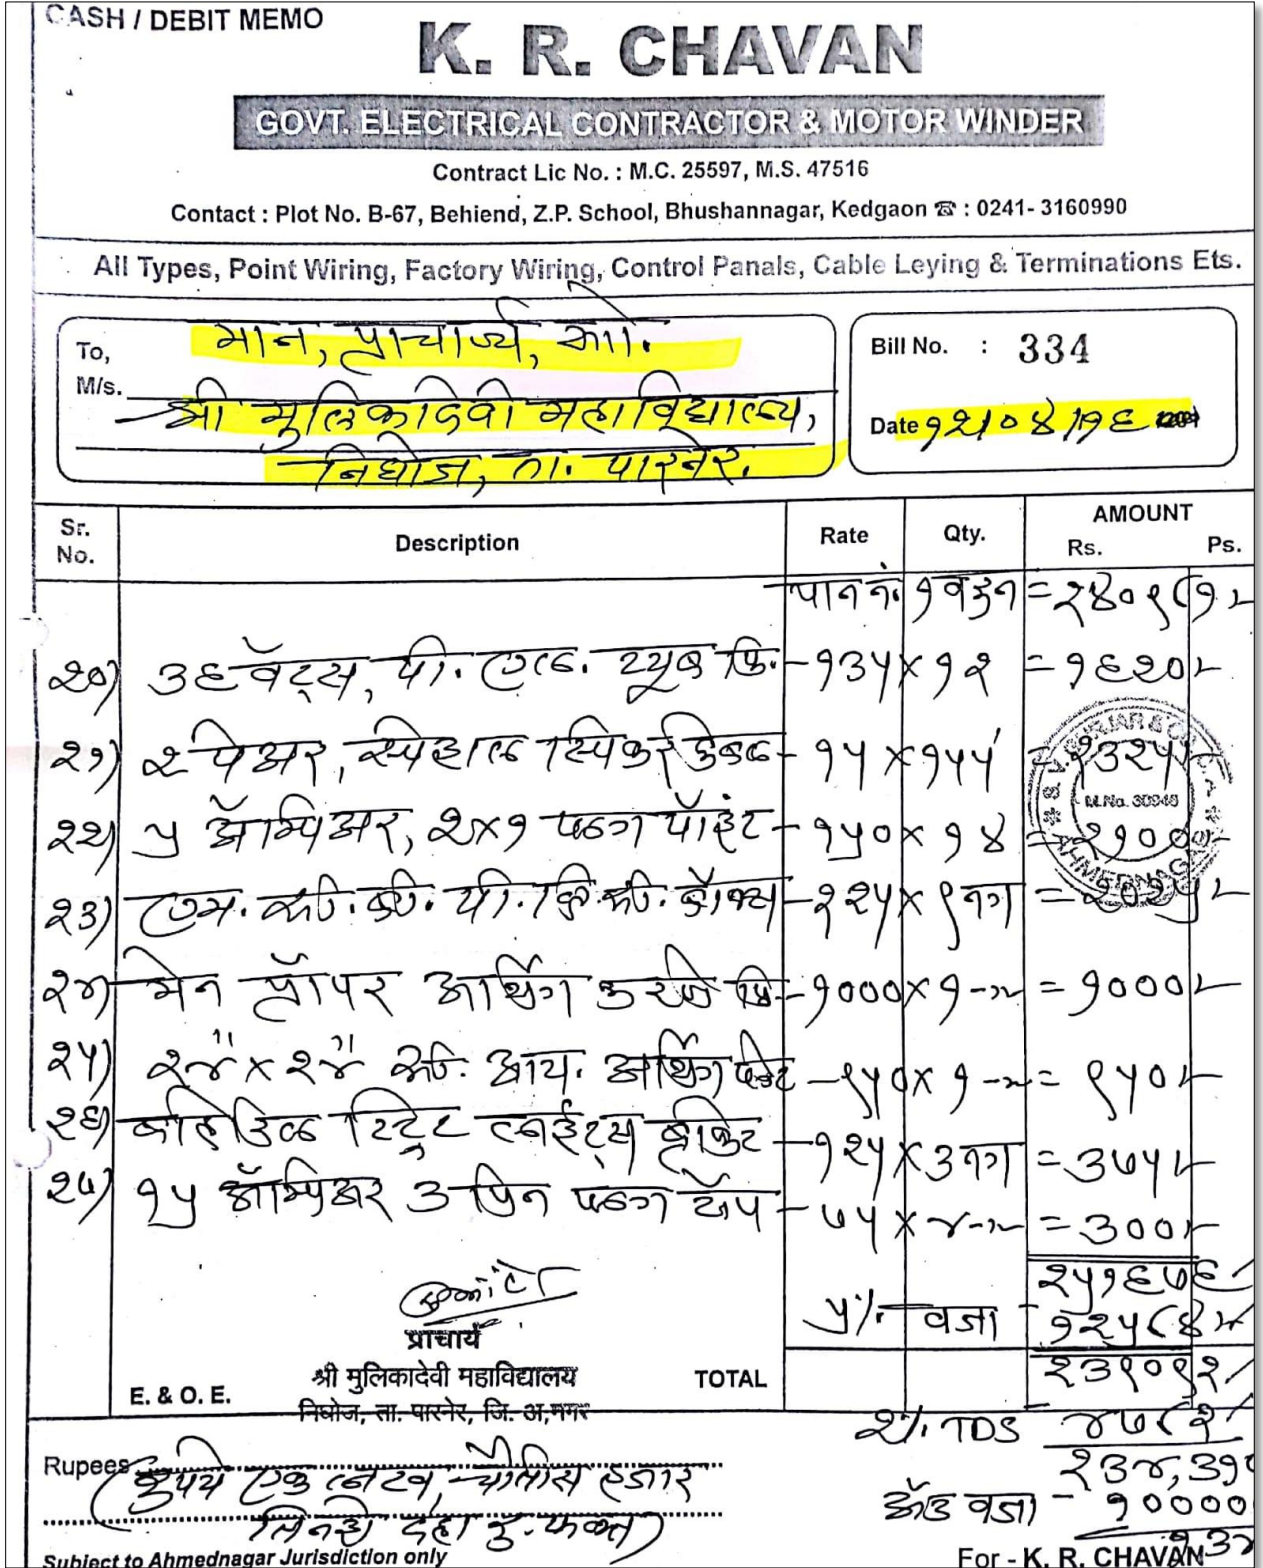 CASH / DEBIT MEMO
K. R. CHAVAN
GOVT. ELECTRICAL CONTRACTOR & MOTOR WINDER
Contract Lic No. : M.C. 25597, M.S. 47516
Contact : Plot No. B-67, Behiend, Z.P. School, Bhushannagar, Kedgaon ☎ : 0241- 3160990
All Types, Point Wiring, Factory Wiring, Control Panals, Cable Leying & Terminations Ets.
To, मान, प्राचार्य,
M/s. श्री मुलिकादेवी महाविद्यालय,
निघोज, ता. पारनेर.
Bill No. : 334
Date १२/०४/१६
Sr. No. Description Rate Qty. AMOUNT Rs. Ps.
पान नं. १ वरुन = २४०९८१/-
२०) ३६ वॅट्स, पी. एल. ट्यूब फि. - १३५ × १२ = १६२०/-
२१) २ पेअर, स्पेशल स्पिकर केबल - १५ × १५५ = २३२५/-
२२) ५ ॲम्पिअर, २×१ प्लग पॉइंट - १५० × १४ = २१००/-
२३) एम. सी. बी. पी. व्ही. सी. बॉक्स - २२५ × ९ नग = २०२५/-
२४) मेन प्रॉपर अर्थिंग करणे फि. - १००० × १ -〃- = १०००/-
२५) २४" × २४" सी. आय. अर्थिंग प्लेट - ९५० × १ -〃- = ९५०/-
२६) स्ट्रिट लाईट्स ब्रॅकेट - १२५ × ३ नग = ३७५/-
२७) १५ ॲम्पिअर ३ पिन प्लग टॉप - ७५ × ४ -〃- = ३००/-
२५१६७६/-
५% वजा - १२५८४/-
प्राचार्य
श्री मुलिकादेवी महाविद्यालय
निघोज, ता. पारनेर, जि. अ,नगर
E. & O. E. TOTAL २३९०९२/-
२% TDS ४७८२/-
२३४,३१०
वजा - १००००
Rupees रुपये एक लाख, चौतीस हजार
तिनशे दहा रु. फक्त)
Subject to Ahmednagar Jurisdiction only
For - K. R. CHAVAN
M.No. 30940
AHMEDNAGAR